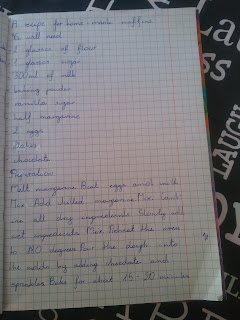 A recipe for home-made muffins
You will need
2 glasses of flour
1 glasses sugar
300 ml of milk
baking powder
vannilla sugar
half margarine
2 eggs
flakes
chocolate
Preparation
Melt margarine. Beat eggs and milk
Mix. Add melted margarine. Mix. Comb-
ine all dry ingredients. Slowly add
wet ingredients. Mix. Preheat the oven
to 180 degrees. Pour the dough into
the molds by adding chocolate and
sprinkles. Bake for about 25-30 minutes
LAUGH